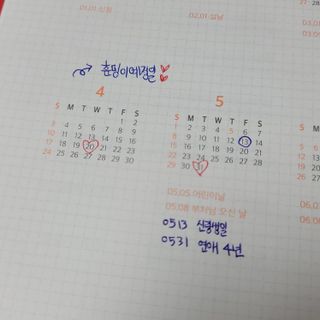 01.01 신정
02.01 설날
춘밍이예정일
4
S M T W T F S
1 2
3 4 5 6 7 8 9
10 11 12 13 14 15 16
17 18 19 20 21 22 23
24 25 26 27 28 29 30
5
S M T W T F S
1 2 3 4 5 6 7
8 9 10 11 12 13 14
15 16 17 18 19 20 21
22 23 24 25 26 27 28
29 30 31
05.05 어린이날
05.08 부처님 오신 날
0513 신랑생일
0531 연애 4년